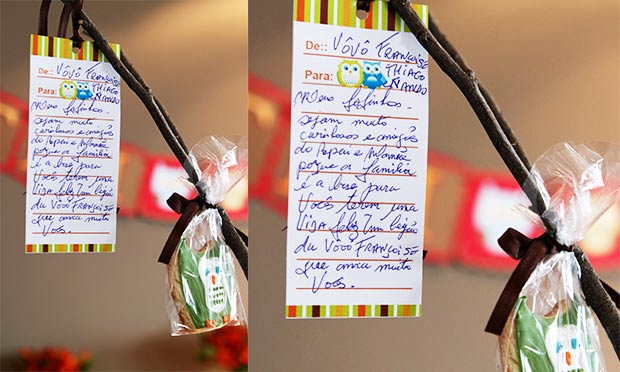 De:: Vôvô Françoise
Para: Thiago
Meus fofinhos.
sejam muito
carinhosos e amigos
do Papai e Mamãe
porque a familia
é a base para
Voces terem uma
Vida feliz! um beijão
da Vôvó FRANÇOISE
que ama muito
Voces.
De:: Vôvô Françoise
Para: Thiago
Meus fofinhos.
sejam muito
carinhosos e amigos
do Papai e Mamãe
porque a familia
é a base para
Voces terem uma
Vida feliz! um beijão
da Vôvó FRANÇOISE
que ama muito
Voces.